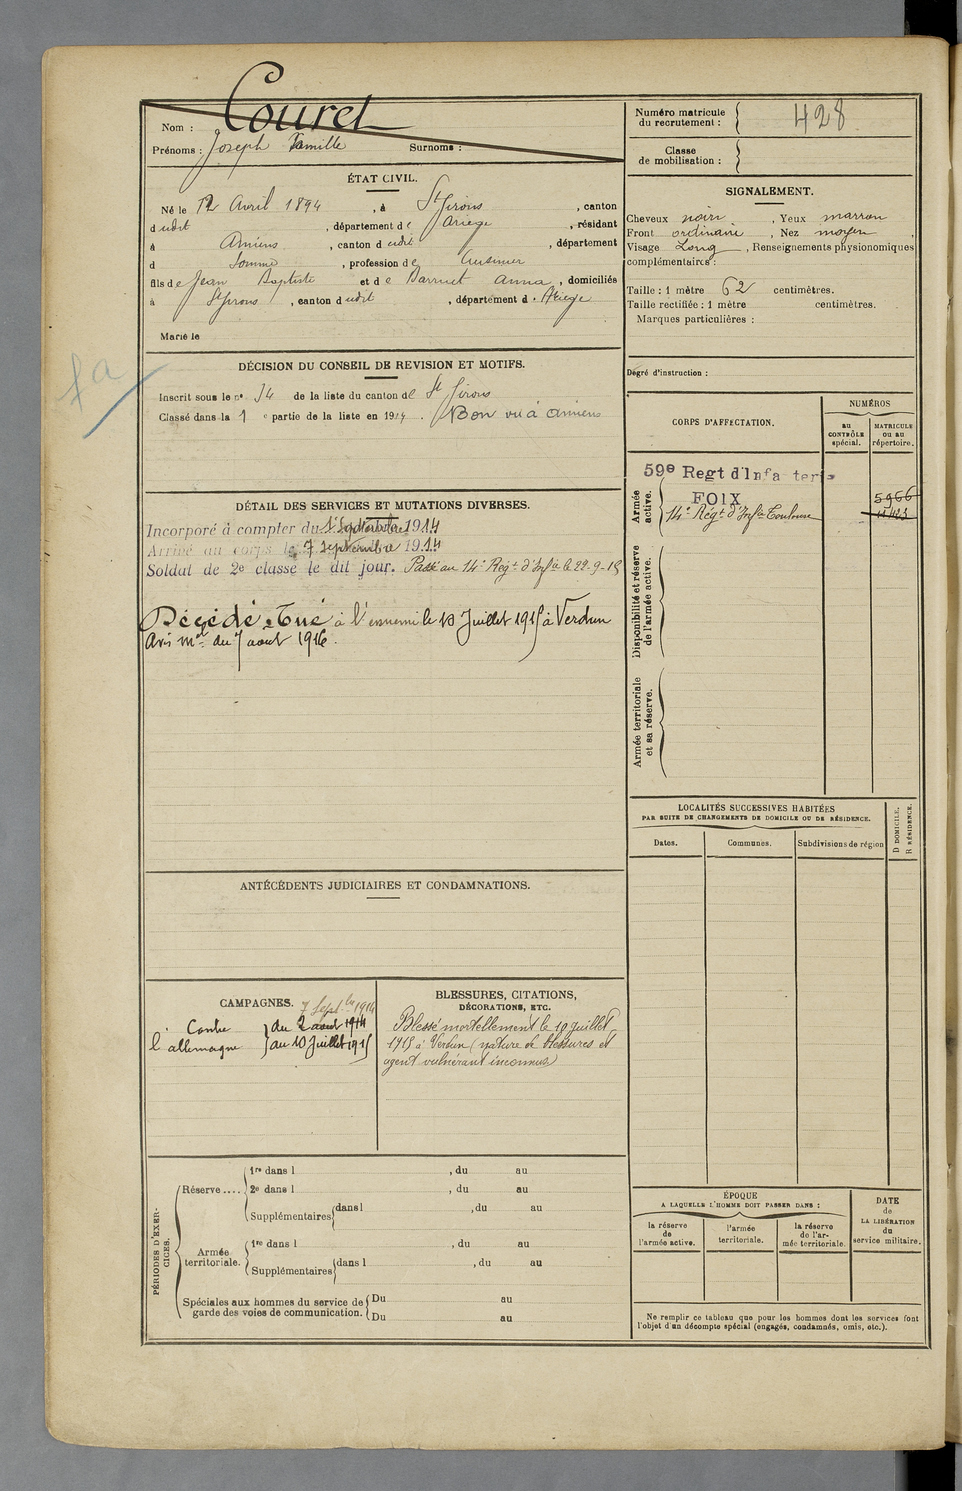 Nom : Couret
Prénoms : Joseph Camille Surnoms :
ÉTAT CIVIL.
Né le 12 Avril 1894, à St Girons, canton
dudit, département de Ariège, résidant
à Amiens, canton dudit, département
d Somme, profession de Cuisinier
fils de Jean Baptiste et de Barrue Anna, domiciliés
à St Girons, canton dudit, département d. Ariège
Marié le
DÉCISION DU CONSEIL DE REVISION ET MOTIFS.
Inscrit sous le no 34 de la liste du canton de St Girons
Classé dans la 1e partie de la liste en 1914. Bon vu à Amiens
fa
DÉTAIL DES SERVICES ET MUTATIONS DIVERSES.
Incorporé à compter du 1er Septembre 1914
Arrivé au corps le 7 septembre 1914
Soldat de 2e classe le dit jour. Passé au 14e Régt d'Infie le 22-9-15
Décédé. Tué à l'ennemi le 10 Juillet 1915 à Verdun
Avis mel du 7 aout 1916.
ANTÉCÉDENTS JUDICIAIRES ET CONDAMNATIONS.
CAMPAGNES.
7 Septbre 1914
Contre du 2 aout 1914
l'allemagne au 10 Juillet 1915
BLESSURES, CITATIONS,
DÉCORATIONS, ETC.
Blessé mortellement le 10 juillet
1915 à Verdun (nature de blessures et
agent vulnérant inconnus)
PÉRIODES D'EXERCICES.
Réserve....
1re dans l , du au
2e dans l , du au
Supplémentaires dans l , du au
Armée territoriale.
1re dans l , du au
Supplémentaires dans l , du au
Spéciales aux hommes du service de
garde des voies de communication.
Du au
Du au
Numéro matricule
du recrutement : 428
Classe
de mobilisation :
SIGNALEMENT.
Cheveux noirs, Yeux marron
Front ordinaire, Nez moyen,
Visage Long, Renseignements physionomiques
complémentaires :
Taille : 1 mètre 62 centimètres.
Taille rectifiée : 1 mètre centimètres.
Marques particulières :
Degré d'instruction :
CORPS D'AFFECTATION.
NUMÉROS
au
CONTRÔLE
spécial.
MATRICULE
ou au
répertoire.
Armée
active.
59e Regt d'Infanterie
FOIX 5966
14e Régt d'Infie Toulouse
Disponibilité et réserve
de l'armée active.
Armée territoriale
et sa réserve.
LOCALITÉS SUCCESSIVES HABITÉES
PAR SUITE DE CHANGEMENTS DE DOMICILE OU DE RÉSIDENCE.
D DOMICILE.
R RÉSIDENCE.
Dates. Communes. Subdivisions de région
ÉPOQUE
A LAQUELLE L'HOMME DOIT PASSER DANS :
la réserve
de
l'armée active.
l'armée
territoriale.
la réserve
de l'ar-
mée territoriale.
DATE
de
LA LIBÉRATION
du
service militaire.
Ne remplir ce tableau que pour les hommes dont les services font
l'objet d'un décompte spécial (engagés, condamnés, omis, etc.).